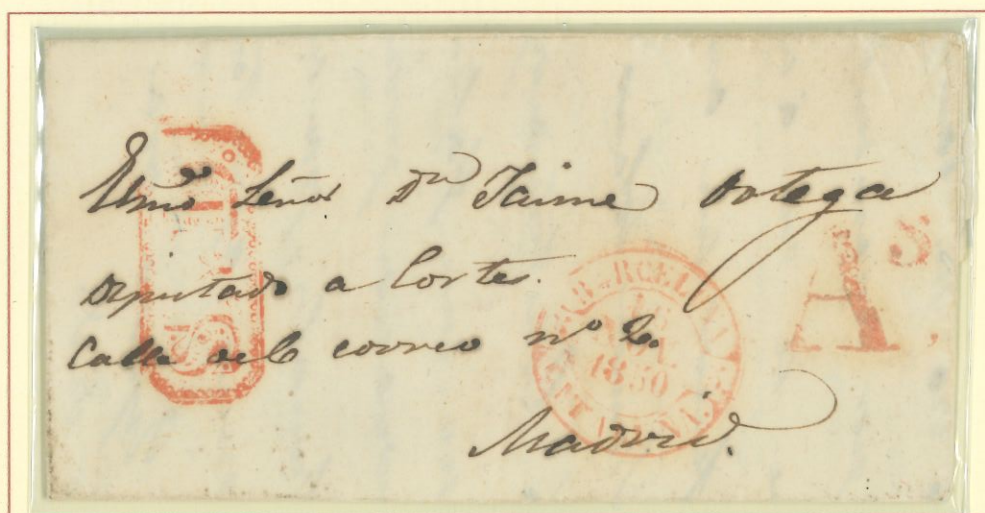 Exmo Señor Dn Jaime Ortega
Diputado a Cortes.
Calle del Correo nº 2.
Madrid.
BARCELONA
1850
CATALUÑA
As